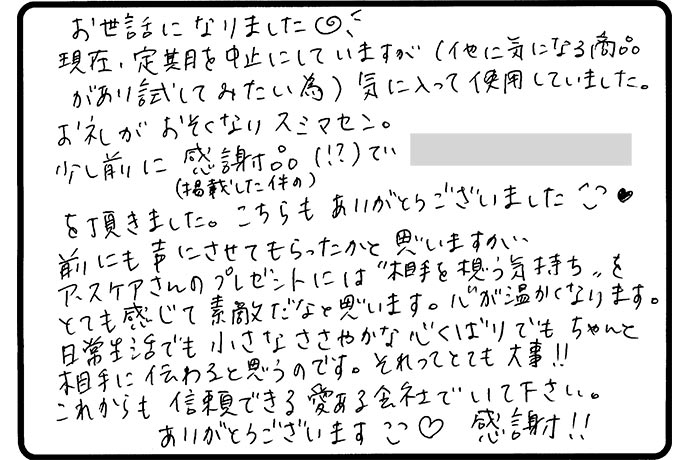 お世話になりました
現在、定期を中止にしていますが（他に気になる商品
があり試してみたい為）気に入って使用していました。
お礼がおそくなりスミマセン。
少し前に感謝品(!?)で
(掲載した件の)
を頂きました。こちらもありがとうございました♥
前にも声にさせてもらったかと思いますが…
アスケアさんのプレゼントには"相手を想う気持ち"を
とても感じて素敵だなと思います。心が温かくなります。
日常生活でも小さなささやかな心くばりでもちゃんと
相手に伝わると思うのです。それってとても大事!!
これからも信頼できる愛ある会社でいて下さい。
ありがとうございます♡ 感謝!!